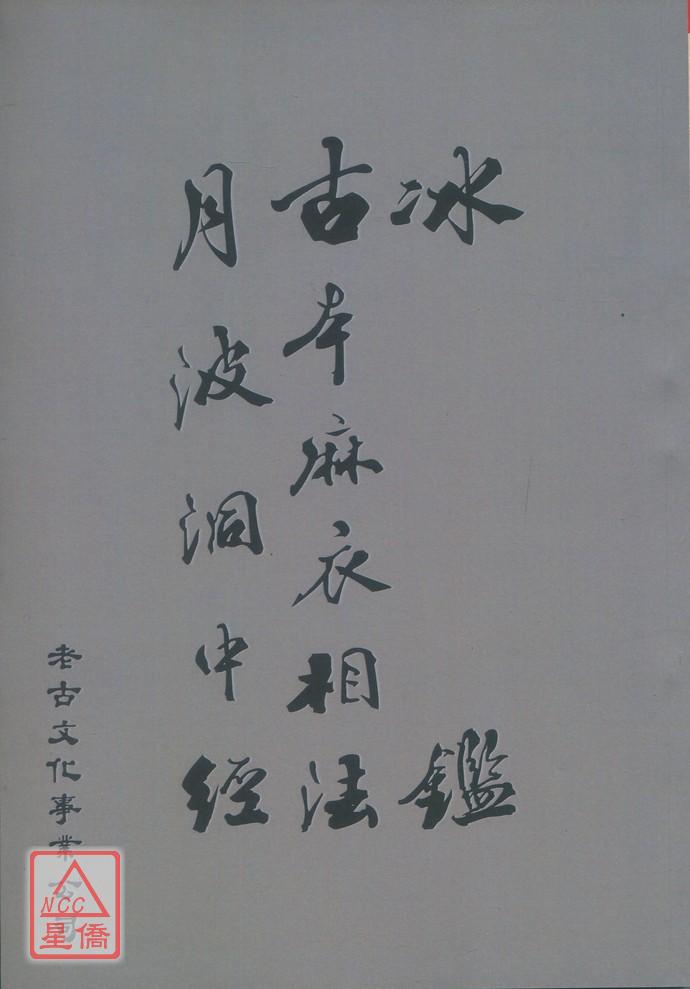 冰鑑
古本麻衣相法
月波洞中經
老古文化事業公司
NCC
星僑